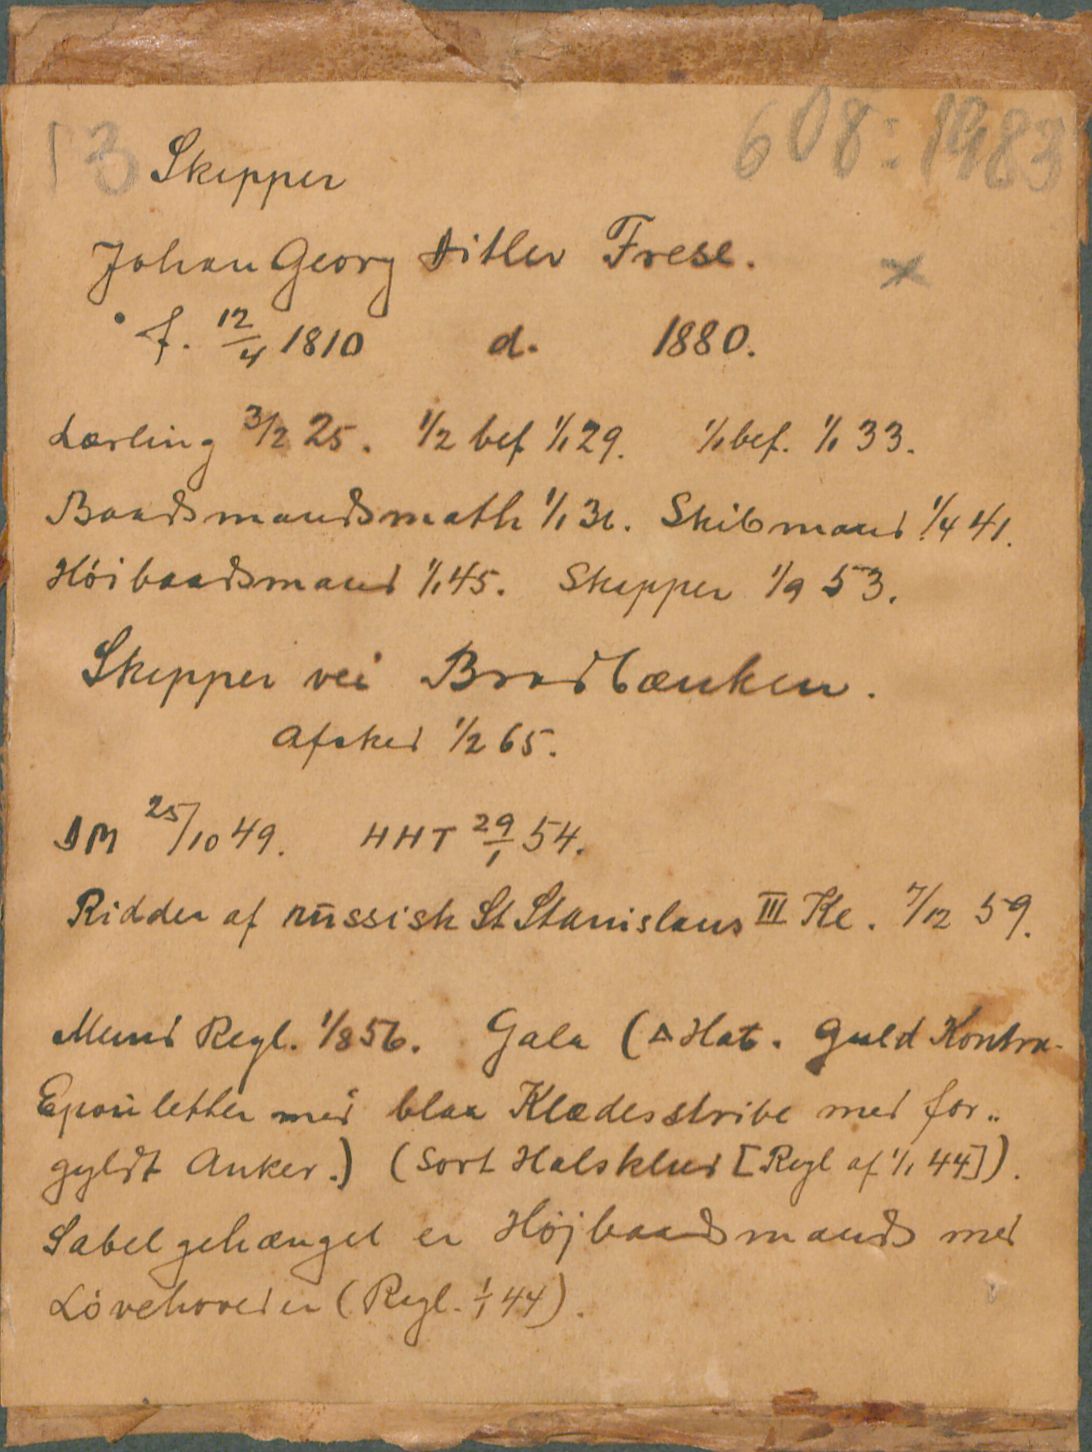 13 608:1983
Skipper
Johan Georg Ditlev Frese.
f. 12/4 1810 d. 1880.
Lærling 3/2 25. 1/2 bef 1/1 29. 1/1 bef. 1/1 33.
Baadsmandsmath 1/1 36. Skibmand 1/4 41.
Høibaadsmand 1/1 45. Skipper 1/9 53.
Skipper ved Bradbænken.
Afsked 1/2 65.
DM 25/10 49. HHT 29/1 54.
Ridder af russisk St Stanislaus III Kl. 7/12 59.
Mund Regl. 1/8 56. Gala (Δ Hat. Guld Kontra-
Epouletter med blaa Klædesstribe med for„
gyldt Anker.) (Sort Halsklud [Regl af 1/1 44]).
Sabelgehænget er Højbaadsmands med
Løvehoveder (Regl. 1/1 44).